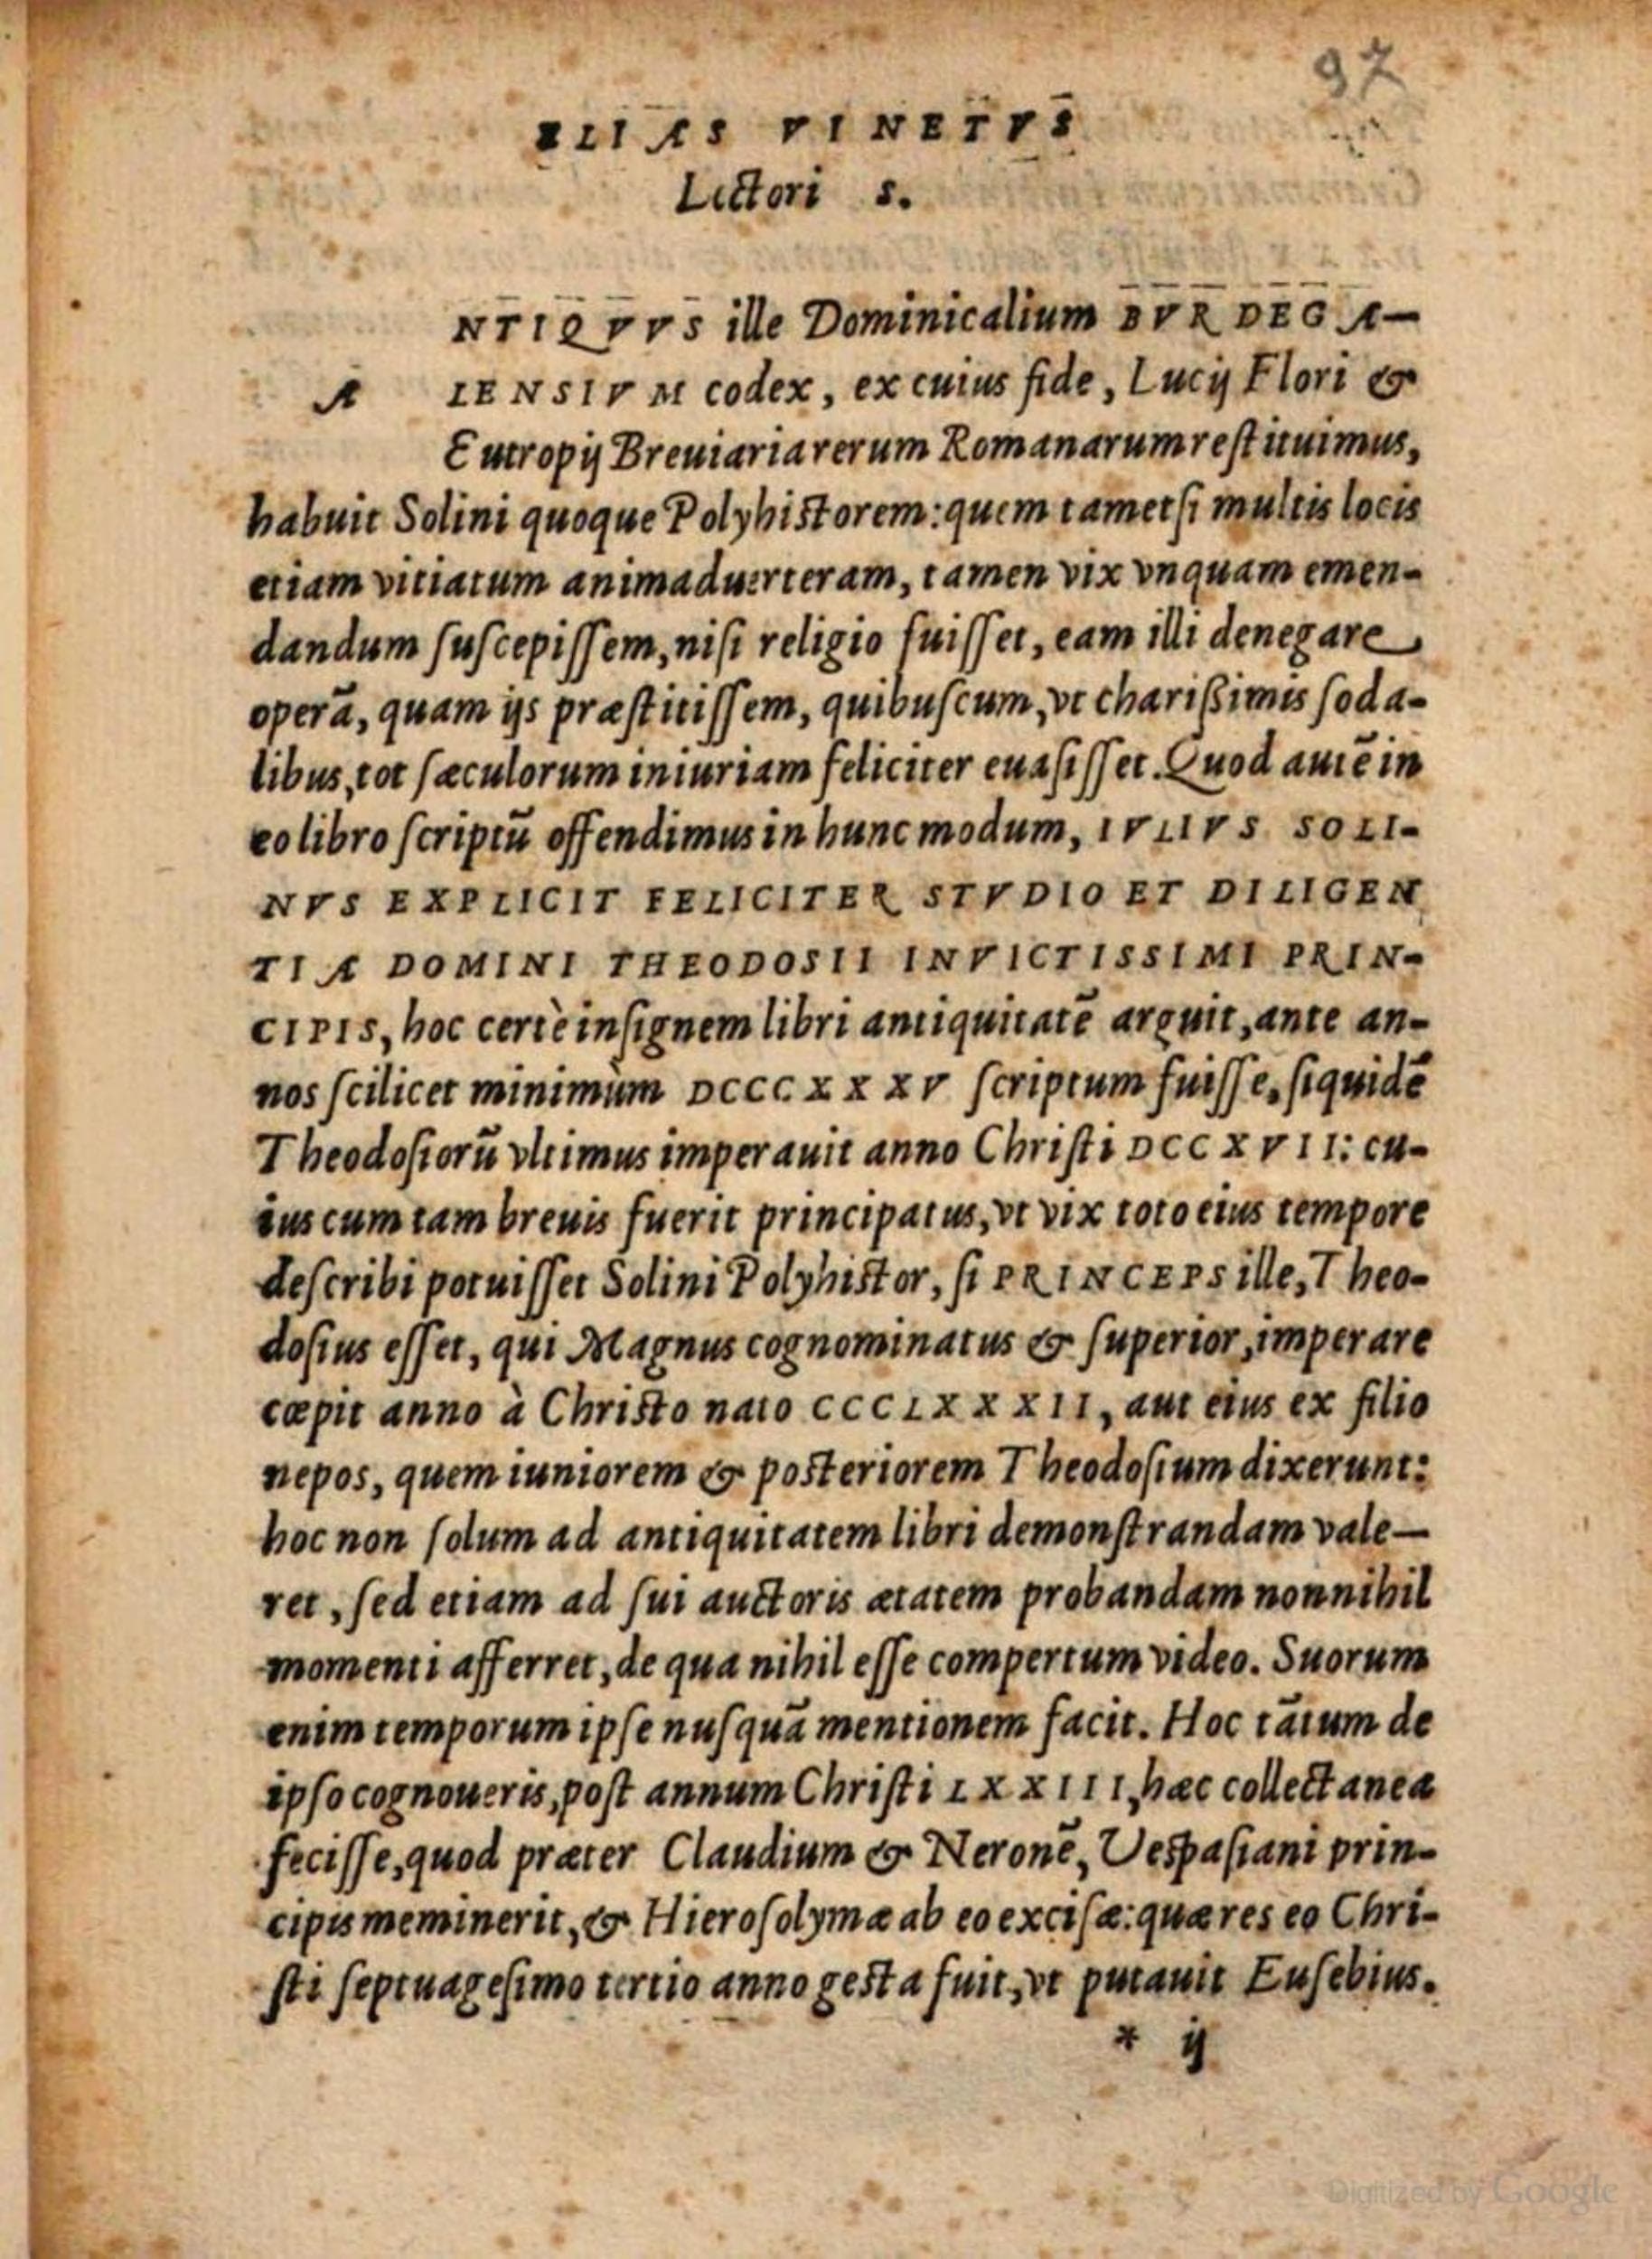 97
ELIAS VINETVS
Lectori s.
NTIQVVS ille Dominicalium BVRDEGA-
A IENSIVM codex, ex cuius fide, Lucij Flori &
Eutropij Breuiaria rerum Romanarum reſtituimus,
habuit Solini quoque Polyhistorem: quem tametſi multis locis
etiam vitiatum animaduerteram, tamen vix vnquam emen-
dandum ſuſcepiſſem, niſi religio fuiſſet, eam illi denegare
operā, quam ijs præſtitiſſem, quibuſcum, vt charißimis ſoda-
libus, tot ſæculorum iniuriam feliciter euaſiſſet. Quod autē in
eo libro ſcriptū offendimus in hunc modum, IVLIVS SOLI-
NVS EXPLICIT FELICITER STVDIO ET DILIGEN
TIA DOMINI THEODOSII INVICTISSIMI PRIN-
CIPIS, hoc certè inſignem libri antiquitatē arguit, ante an-
nos ſcilicet minimùm DCCCXXXV ſcriptum fuiſſe, ſiquidē
Theodoſiorū vltimus imperauit anno Chriſti DCCXVII: cu-
ius cum tam breuis fuerit principatus, vt vix toto eius tempore
deſcribi potuiſſet Solini Polyhistor, ſi PRINCEPS ille, Theo-
doſius eſſet, qui Magnus cognominatus & ſuperior, imperare
cœpit anno à Christo nato CCCLXXXII, aut eius ex filio
nepos, quem iuniorem & posteriorem Theodoſium dixerunt:
hoc non ſolum ad antiquitatem libri demonſtrandam vale-
ret, ſed etiam ad ſui auctoris ætatem probandam nonnihil
momenti afferret, de qua nihil eſſe compertum video. Suorum
enim temporum ipſe nuſquā mentionem facit. Hoc tātum de
ipſo cognoueris, poſt annum Chriſti LXXIII, hæc collectanea
feciſſe, quod præter Claudium & Neronē, Veſpaſiani prin-
cipis meminerit, & Hieroſolymæ ab eo exciſæ: quæ res eo Chri-
ſti ſeptuageſimo tertio anno gesta fuit, vt putauit Euſebius.
* ij
Digitized by Google